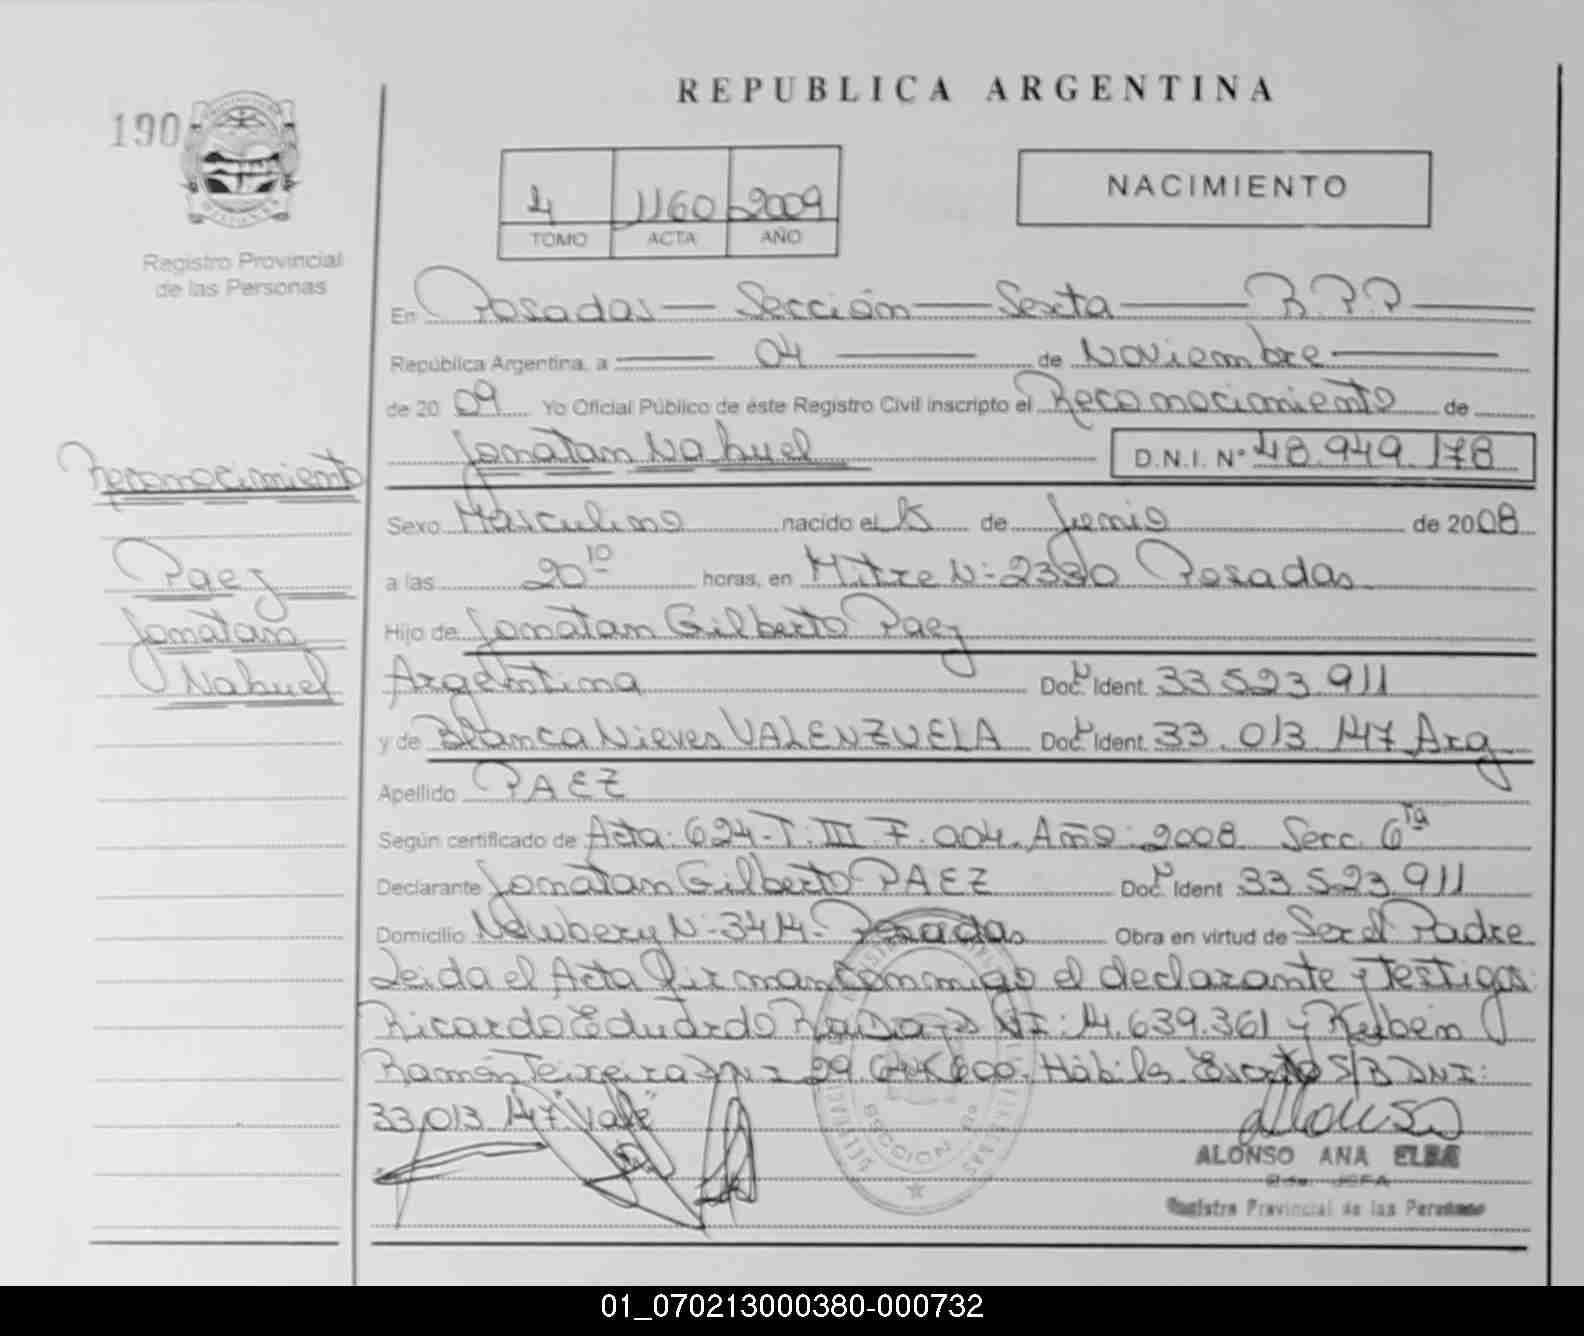 REPUBLICA ARGENTINA
190
4 1160 2009
TOMO ACTA AÑO
NACIMIENTO
Registro Provincial
de las Personas
En Posadas - Sección - Sexta - R.P.P
República Argentina, a 04 de Noviembre
de 2009 Yo Oficial Público de éste Registro Civil inscripto el Reconocimiento de
Jonatan Nahuel D.N.I. N° 48.949.178
Reconocimiento
Paez
Jonatan
Nahuel
Sexo Masculino nacido el 15 de Junio de 2008
a las 20 10 horas, en Mitre N: 2330 Posadas
Hijo de Jonatan Gilberto Paez
Argentina Doc. Ident. 33 523 911
y de Blanca Nieves VALENZUELA Doc. Ident. 33.013 147 Arg
Apellido PAEZ
Según certificado de Acta: 624-T: III F. 004. Año: 2008 Secc. 6ta
Declarante Jonatan Gilberto PAEZ Doc. Ident 33 523 911
Domicilio Newbery N: 3414- Posadas Obra en virtud de Ser el Padre
Leida el Acta firman conmigo el declarante y Testigos:
Ricardo Eduardo DNI: 14.639.361 y Rubén
Ramón Teixeira DNI: 29 600. S/B DNI:
33.013 147 "Vale"
SECCION 6ª
ALONSO ANA ELBA
JEFA
Registro Provincial de las Personas
01_070213000380-000732